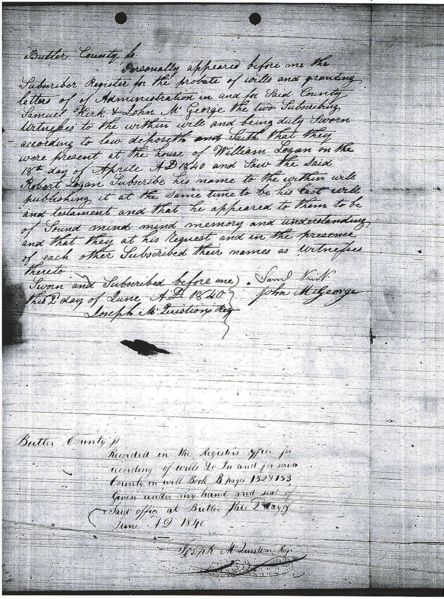 Butler County ss
Personally appeared before me the
Subscriber Register for the probate of wills and granting
letters of of Administration in and for Said County
Samuel Kirk & John McGeorge the two Subscribing
Witnesses to the within will and being duly Sworn
according to law deposeth and Saith that they
were present at the house of William Logan on the
18th day of Aprile AD 1840 and Saw the said
Robert Logan Subscribe his name to the within will
publishing it at the Same time to be his last will
and testament and that he appeared to them to be
of Sound mind mind memory and understanding
and that they at his Request and in the presence
of each other Subscribed their names as Witnesses
thereto
Sworn and Subscribed before me
this 2d day of June A.D. 1840
Saml Kirk
John McGeorge
Joseph McQuistion Reg
Butler County ss
Recorded in the Registers office for
recording of wills &c In and for said
County in will Book B pages 152 & 153
Given under my hand and seal of
Said office at Butler this 2d day of
June AD 1840
Joseph McQuistion Reg